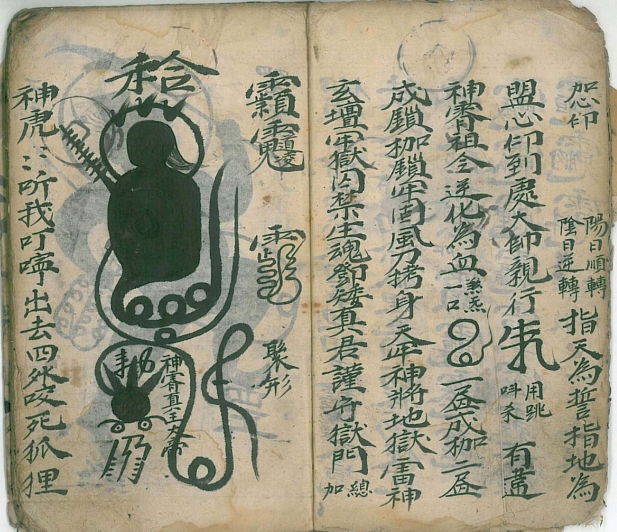 恕印 陽日順轉 陰日逆轉 指天為誓指地為
盟心印到處大師親行 用跳 有違
神霄祖令逆化為血 一口 一盆成枷二盆
成鎖枷鎖牢固風刀拷身天牢神將地獄雷神
玄壇牢獄內禁生魂鄧矮真君謹守獄門 總加
聚形
神霄真王大帝
神虎〻听我叮嚀出去四处咬死狐狸